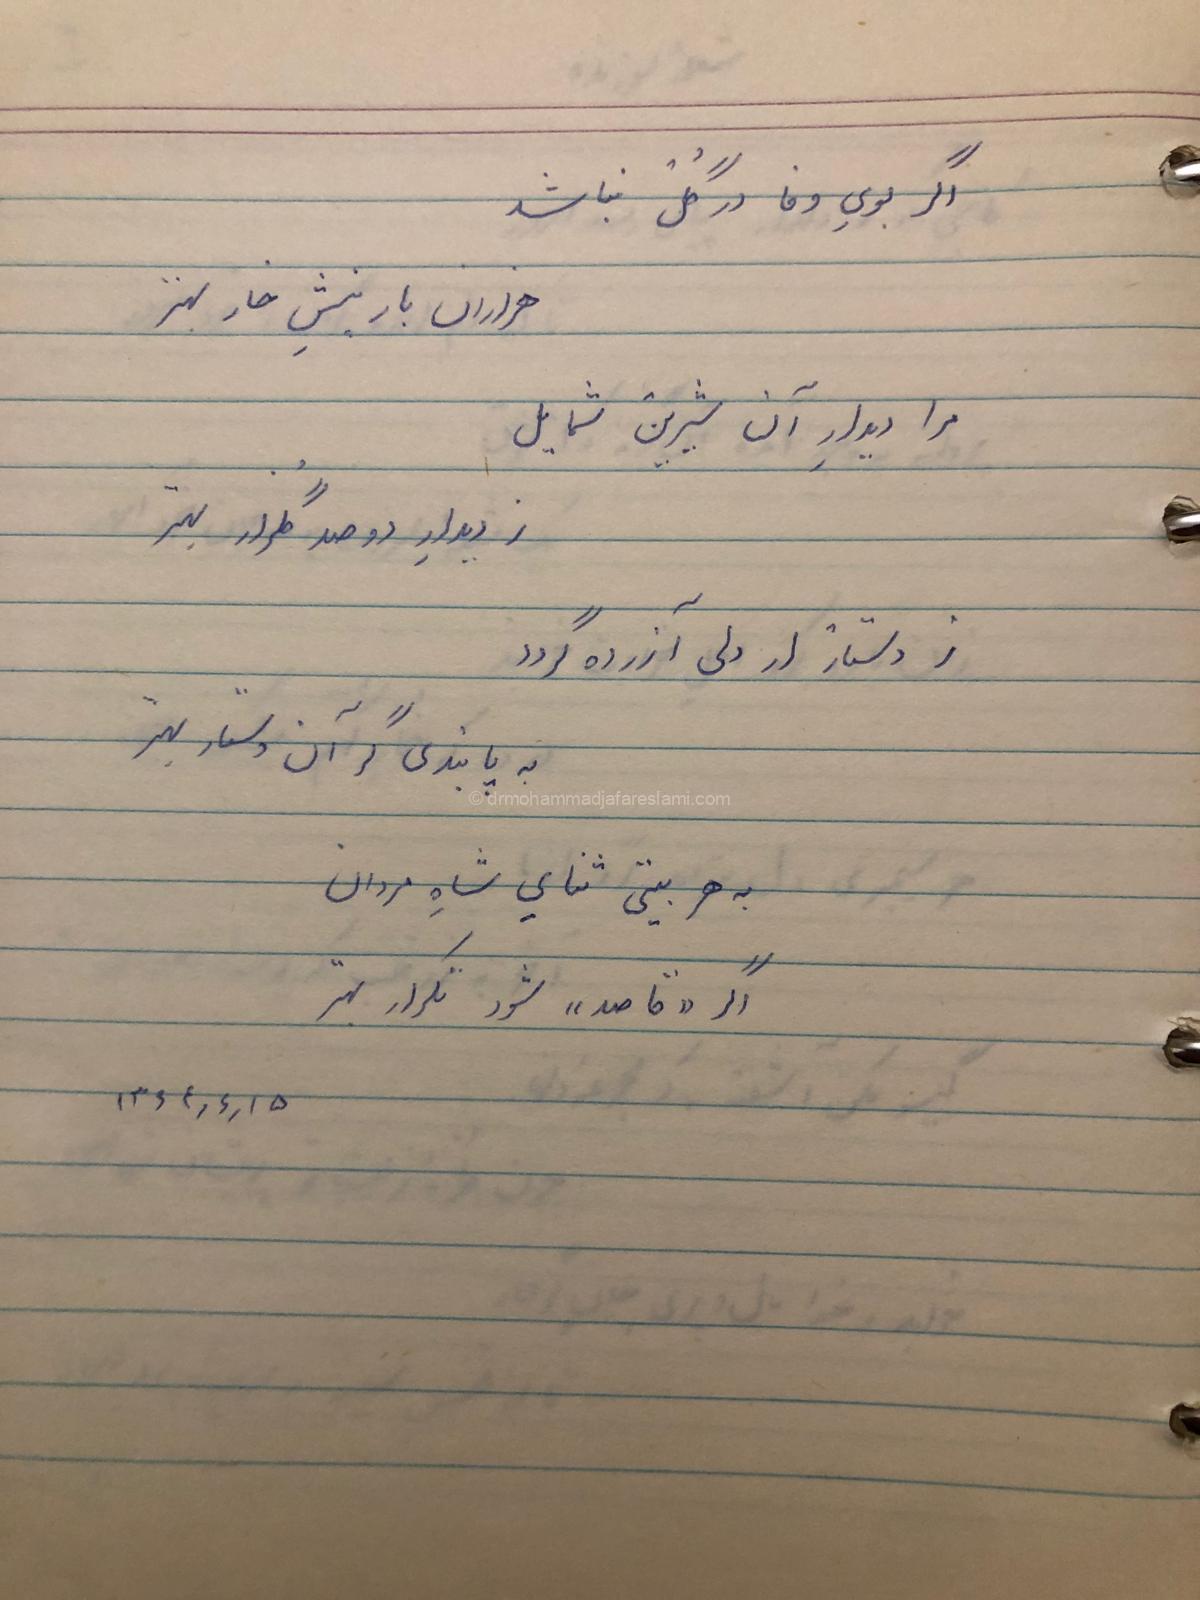 اگر بویِ وفا در گُل نباشد
هزاران بار نیشِ خار بهتر
مرا دیدارِ آن شیرین شمایل
ز دیدارِ دو صد گُلزار بهتر
ز دستار ار دلی آزرده گردد
به پابندی گر آن دستار بهتر
به هر بیتی ثنایِ شاهِ مردان
اگر «قاصد» شود تکرار بهتر
۱۳۶۴٫۶٫۱۵
© drmohammadjafareslami.com